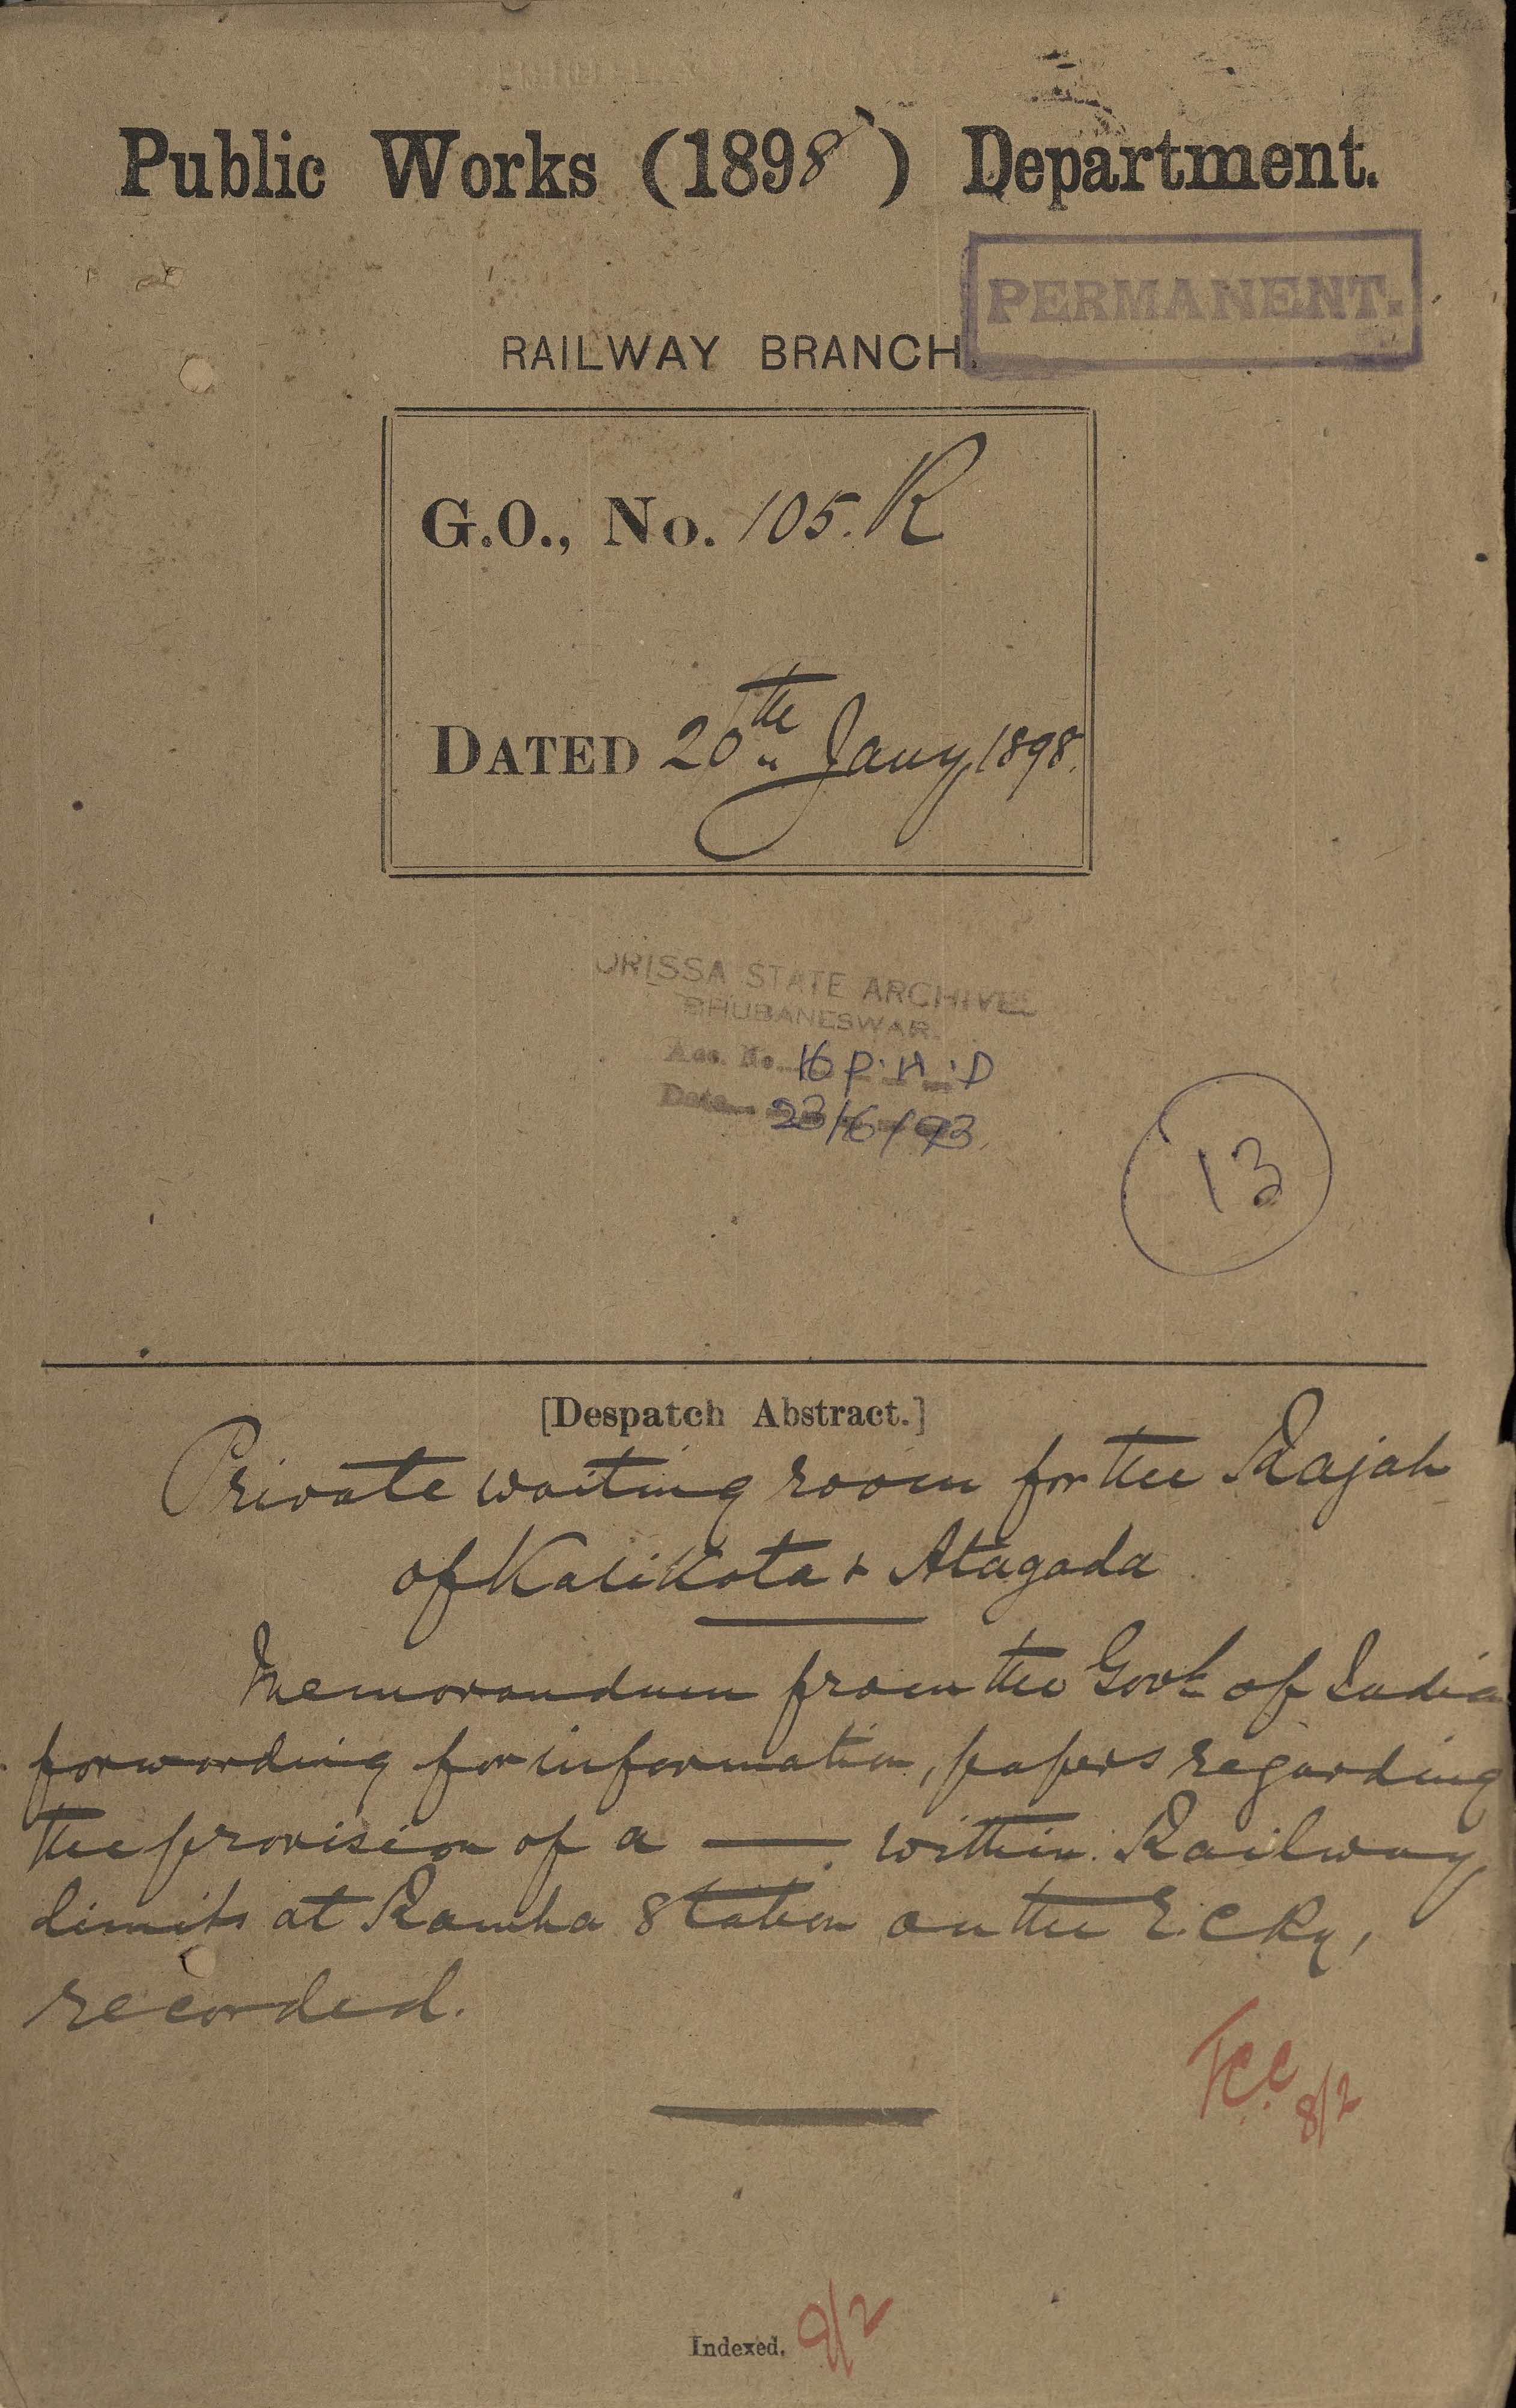 Public Works (1898) Department.
PERMANENT.
RAILWAY BRANCH.
G.O., No. 105. R
DATED 20th Jany 1898.
ORISSA STATE ARCHIVES
BHUBANESWAR.
Acc. No. 16 P.H.D
Date 23/6/93
13
[Despatch Abstract.]
Private waiting room for the Rajah
of Kalikota & Atagada
Memorandum from the Govt of India
forwarding for information, papers regarding
the provision of a — within Railway
limits at Rambha Station on the E.C Ry,
recorded.
8/2
Indexed. 9/2